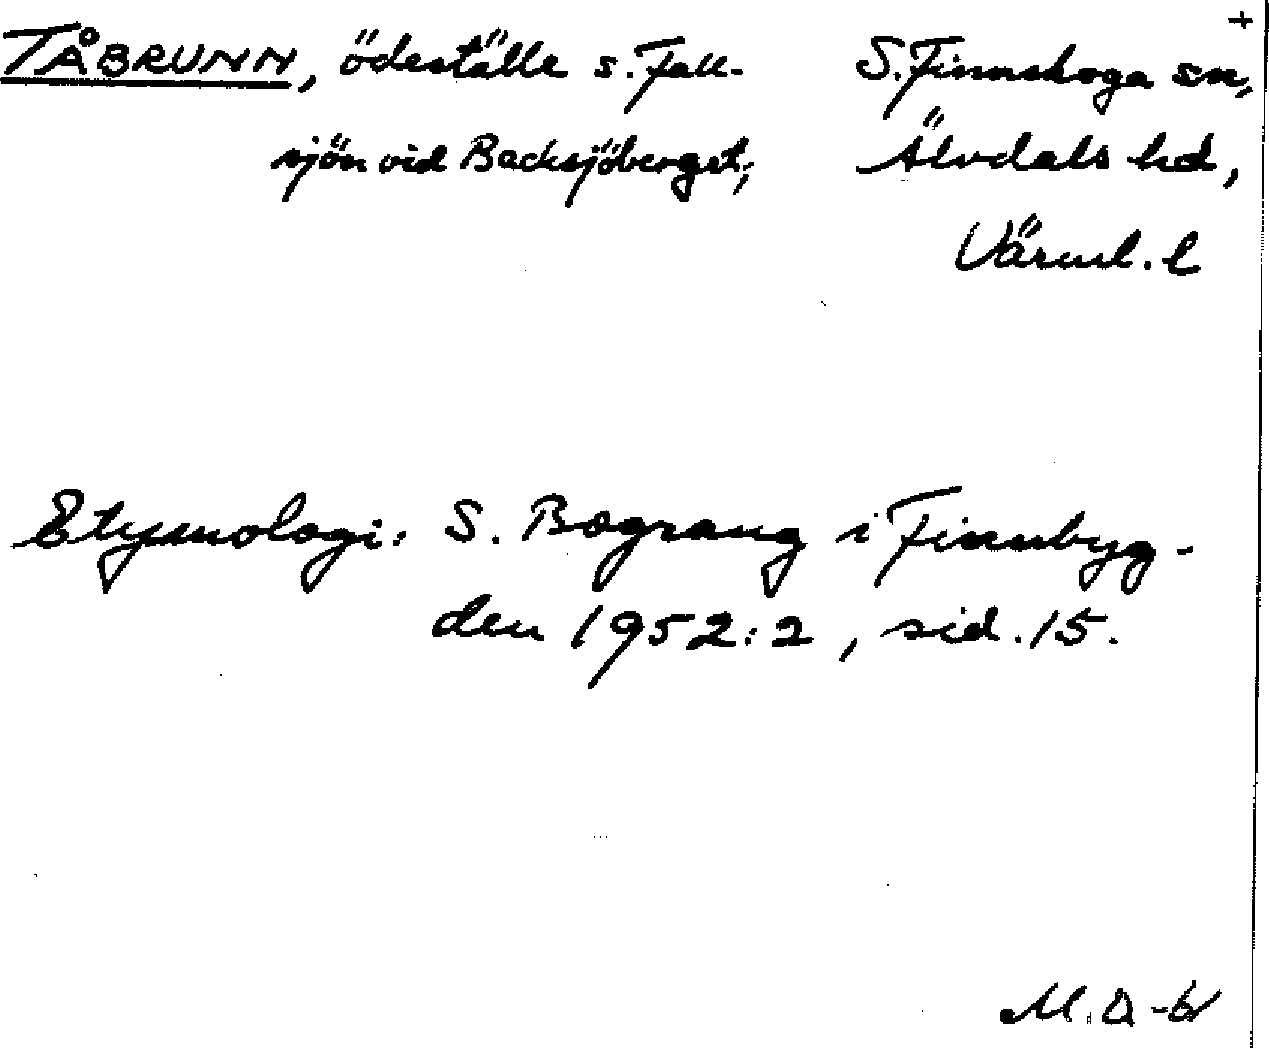 +
TÅBRUNN, ödeställe s. Fall-
sjön vid Backsjöberget;
S. Finnskoga sn,
Älvdals hd,
Värml. l
Etymologi: S. Bograng i Finnbyg-
den 1952:2, sid. 15.
M. Q-br